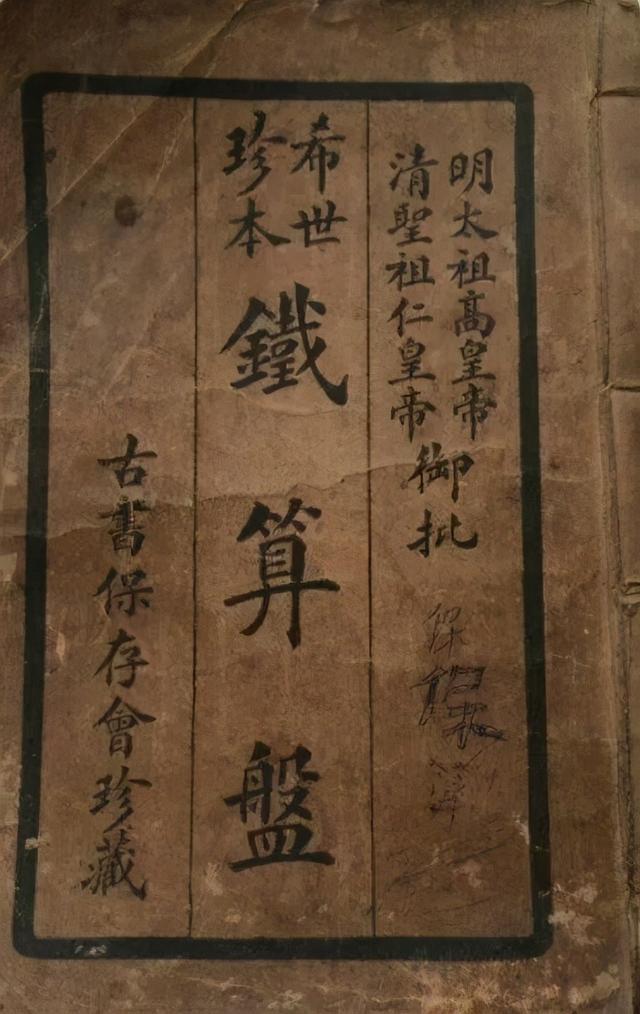 明太祖高皇帝
清聖祖仁皇帝
御批
希世
珍本
鐵算盤
古書保存會珍藏